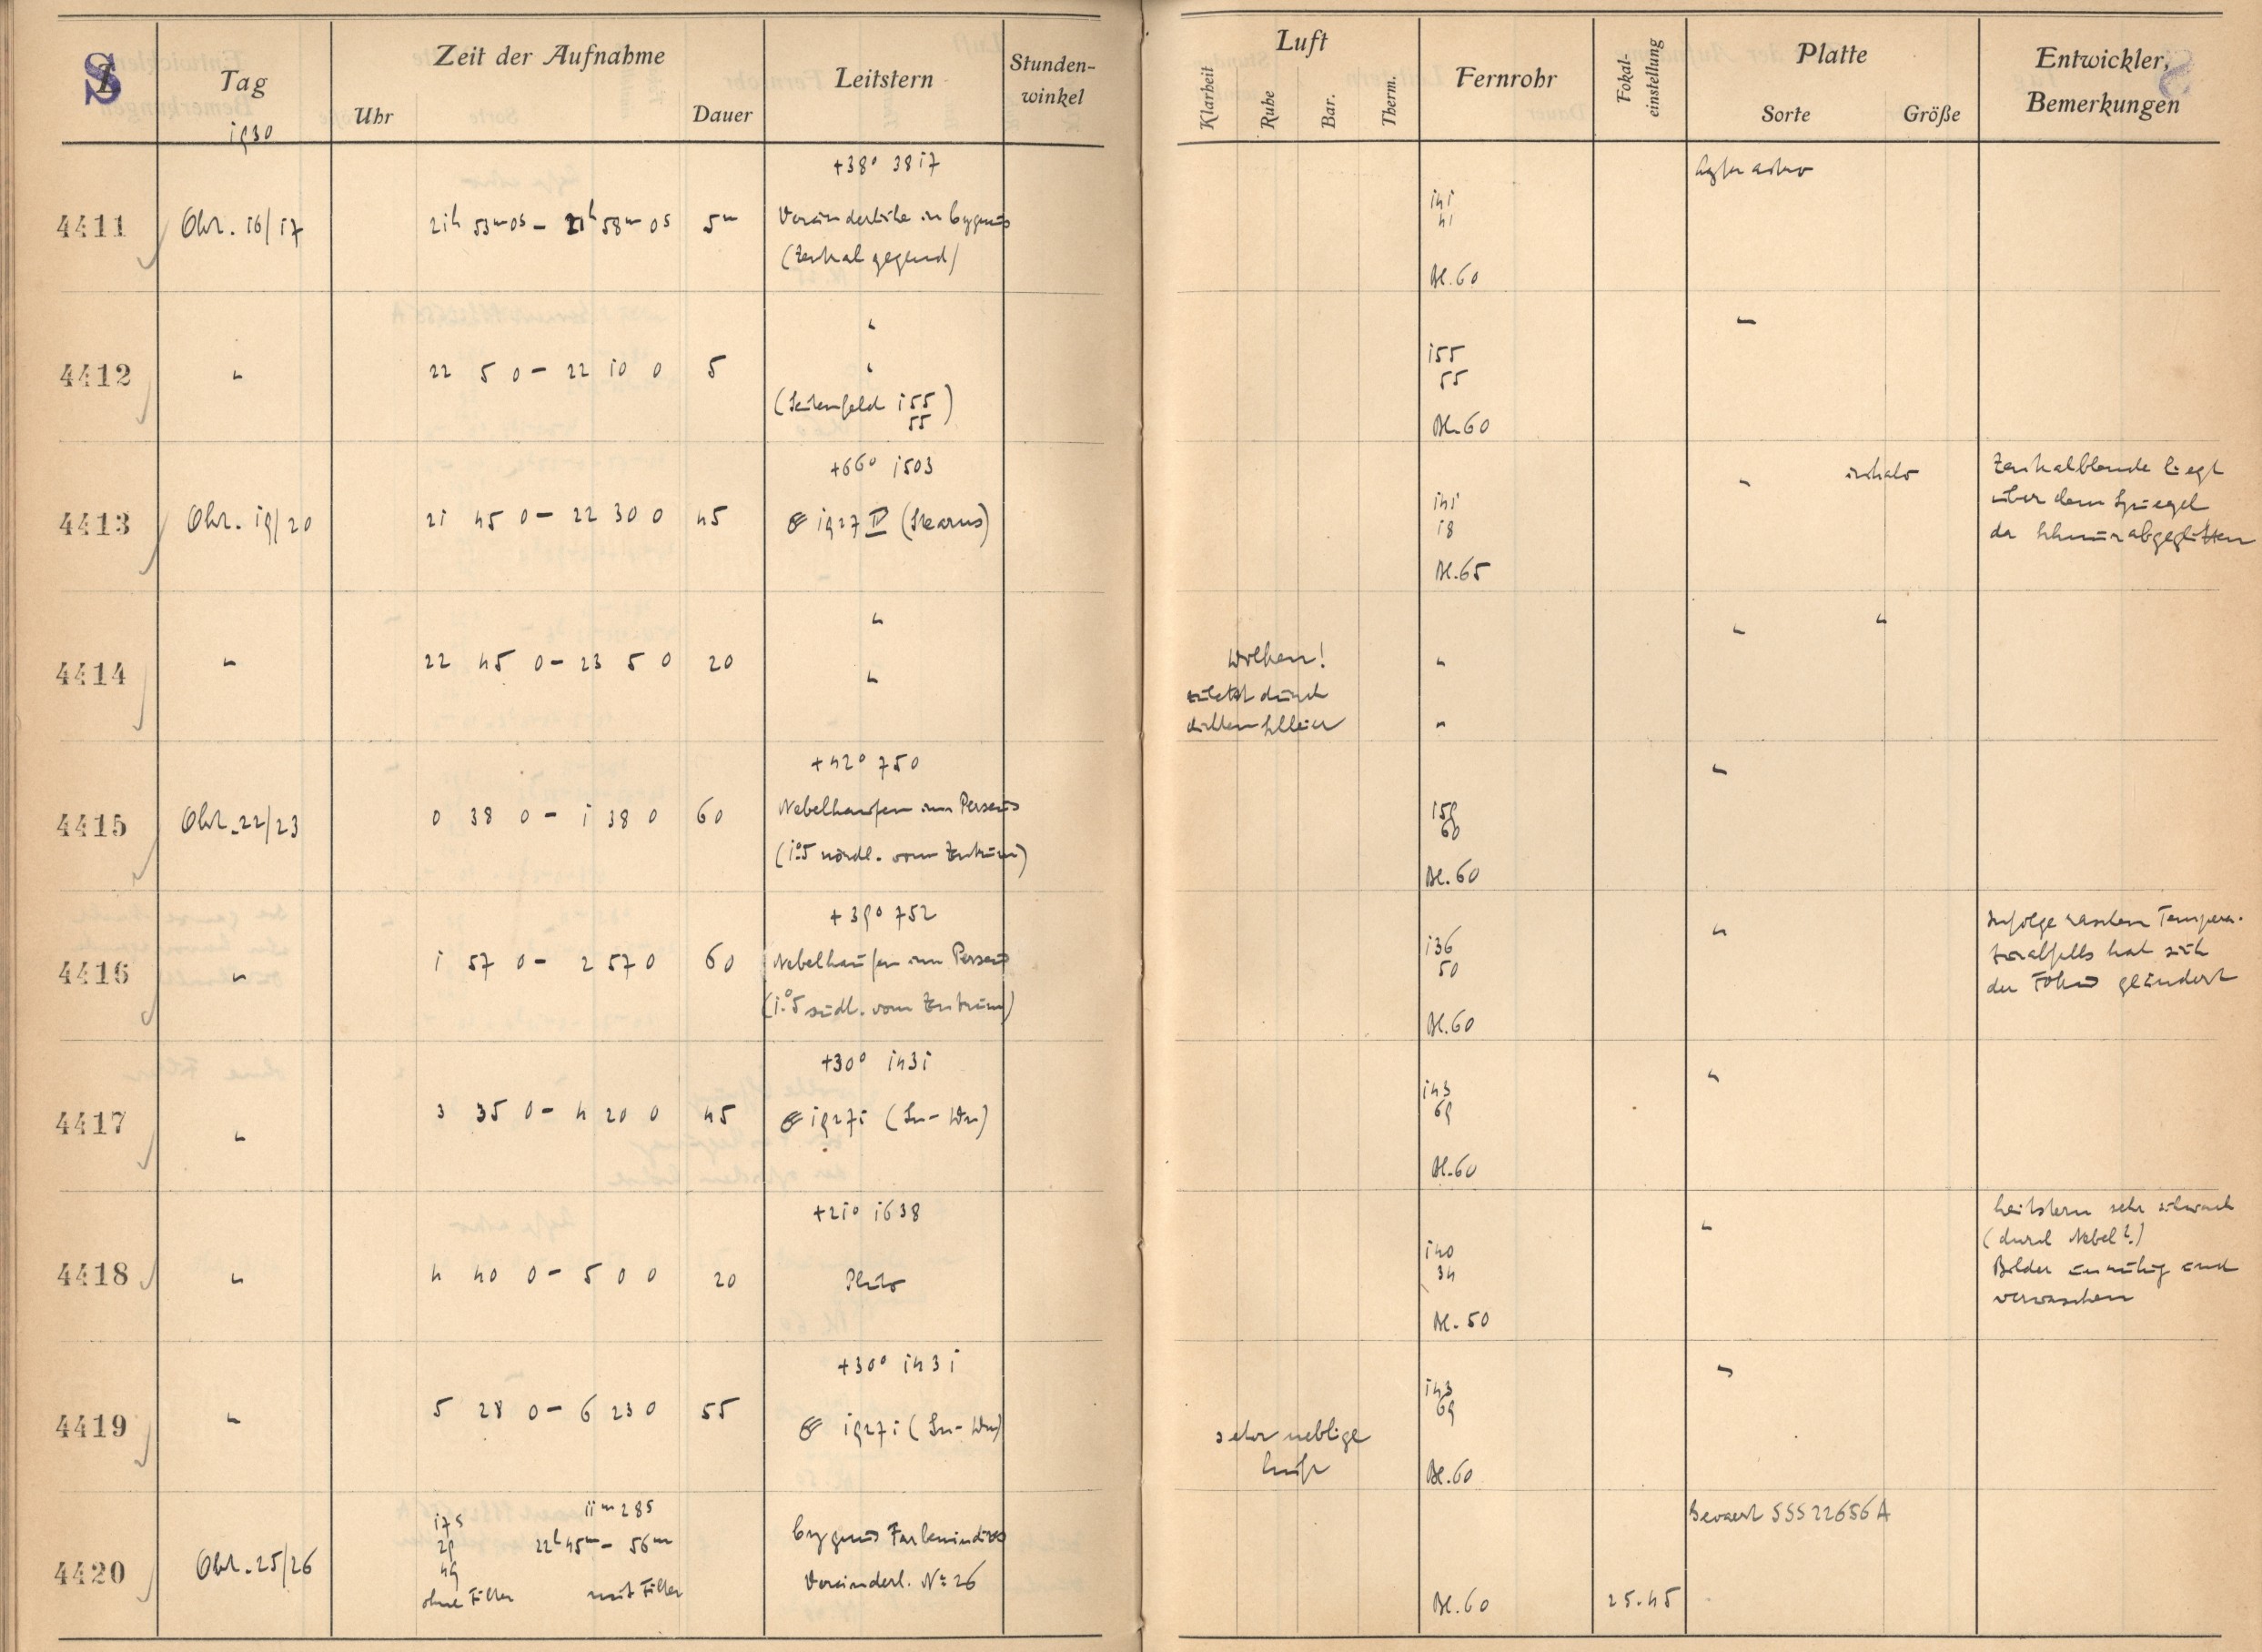 S
Tag
Zeit der Aufnahme
Uhr
Dauer
Leitstern
Stunden-
winkel
Luft
Klarheit
Ruhe
Bar.
Therm.
Fernrohr
Fokal-
einstellung
Platte
Sorte
Größe
Entwickler,
Bemerkungen
1930
+38° 3817
4411 Okt. 16/17 21h 53m 0s – 21h 58m 0s 5m Veränderliche in Cygnus
(Zentralgegend)
Agfa astro
141
41
Bl. 60
"
4412 " 22 5 0 – 22 10 0 5 "
(Seitenfeld 155
55)
"
155
55
Bl. 60
+66° 1503
4413 Okt. 19/20 21 45 0 – 22 30 0 45 1927 IV
141
18
Bl. 65
"
Zentralblende liegt
über dem Spiegel
da Schnur abgeglitten
"
4414 " 22 45 0 – 23 5 0 20 "
Wolken!
zuletzt durch
dichten Schleier
"
"
" "
+42° 750
4415 Okt. 22/23 0 38 0 – 1 38 0 60 Nebelhaufen im Perseus
(1°.5 nördl. vom Zentrum)
"
159
60
Bl. 60
+39° 752
4416 " 1 57 0 – 2 57 0 60 Nebelhaufen im Perseus
(1°.5 südl. vom Zentrum)
"
136
50
Bl. 60
Infolge raschen Tempera-
turabfalls hat sich
der Fokus geändert
+30° 1431
4417 " 3 35 0 – 4 20 0 45 19271
"
143
69
Bl. 60
+210 1638
4418 " 4 40 0 – 5 0 0 20 Pluto
"
140
34
Bl. 50
Leitstern sehr schwach
(durch Nebel?)
Bilder unruhig und
verwaschen
+30° 1431
4419 " 5 28 0 – 6 23 0 55 19271
sehr neblige
Luft
"
143
69
Bl. 60
4420 Okt. 25/26
17s
29
49
ohne Filter
11m 28s
22h 45m – 56m
mit Filter
Cygnus Farbenindex
Veränderl. No 26
Bl. 60
25.45
Gevaert SSS 22656 A